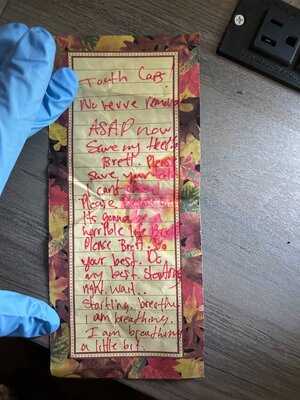 Tooth Caps.
No nerve removal
ASAP now
Save my teeth
Brett. Please
save your teeth
I cant chew
Please.
Its gonna be a
horrible life Brett
Please Brett. Do
your best. Do
my best. Starting
right. wait..
Starting. breathe.
I am breathing.
I am breathing
a little bit.